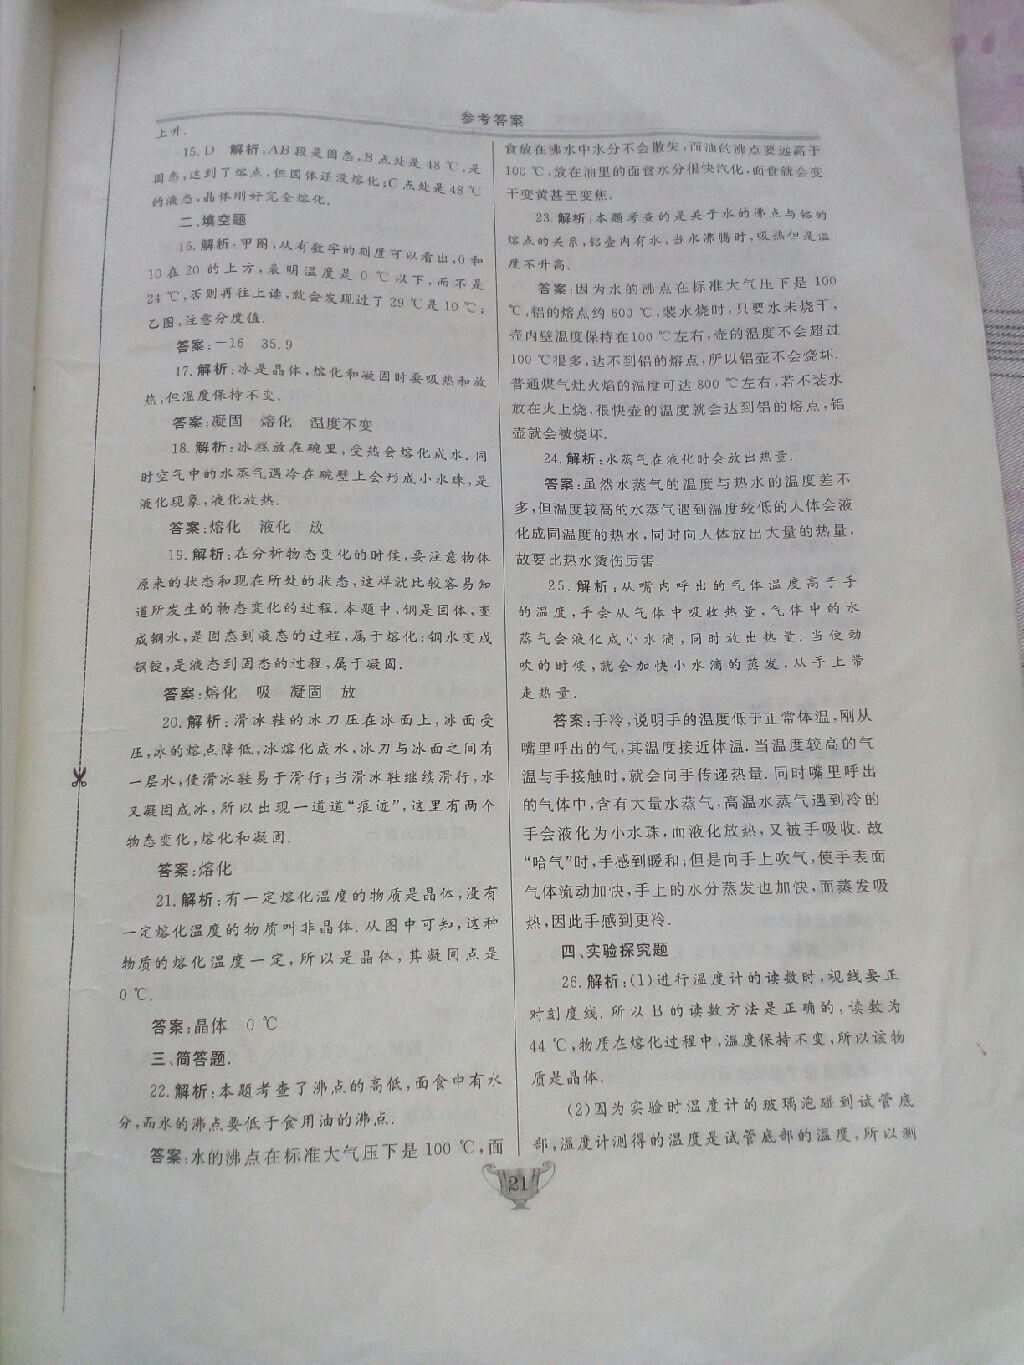 参考答案
上升.
15.D 解析:AB段是固态,B点处是48 ℃,是
固态,达到了熔点,但固体还没熔化;C点处是48 ℃
的液态,晶体刚好完全熔化.
二、填空题
16.解析:甲图,从有数字的刻度可以看出,0和
10在20的上方,表明温度是0 ℃以下,而不是
24 ℃,否则再往上读,就会发现过了29 ℃是10 ℃;
乙图,注意分度值.
答案:-16 35.9
17.解析:冰是晶体,熔化和凝固时要吸热和放
热,但温度保持不变.
答案:凝固 熔化 温度不变
18.解析:冰糕放在碗里,受热会熔化成水.同
时空气中的水蒸气遇冷在碗壁上会形成小水珠,是
液化现象,液化放热.
答案:熔化 液化 放
19.解析:在分析物态变化的时候,要注意物体
原来的状态和现在所处的状态,这样就比较容易知
道所发生的物态变化的过程.本题中,钢是固体,变
成钢水,是固态到液态的过程,属于熔化;钢水变成
钢锭,是液态到固态的过程,属于凝固.
答案:熔化 吸 凝固 放
20.解析:滑冰鞋的冰刀压在冰面上,冰面受
压,冰的熔点降低,冰熔化成水,冰刀与冰面之间有
一层水,使滑冰鞋易于滑行;当滑冰鞋继续滑行,水
又凝固成冰,所以出现一道道“痕迹”,这里有两个
物态变化,熔化和凝固.
答案:熔化
21.解析:有一定熔化温度的物质是晶体,没有
一定熔化温度的物质叫非晶体.从图中可知,这种
物质的熔化温度一定,所以是晶体,其凝固点是
0 ℃.
答案:晶体 0 ℃
三、简答题.
22.解析:本题考查了沸点的高低,面食中有水
分,而水的沸点要低于食用油的沸点.
答案:水的沸点在标准大气压下是100 ℃,面
食放在沸水中水分不会散失,而油的沸点要远高于
100 ℃,放在油里的面食水分很快汽化,面食就会变
干变黄甚至变焦.
23.解析:本题考查的是关于水的沸点与铝的
熔点的关系,铝壶内有水,当水沸腾时,吸热但是温
度不升高.
答案:因为水的沸点在标准大气压下是100
℃,铝的熔点约600 ℃,装水烧时,只要水未烧干,
壶内壁温度保持在100 ℃左右,壶的温度不会超过
100 ℃很多,达不到铝的熔点,所以铝壶不会烧坏.
普通煤气灶火焰的温度可达800 ℃左右,若不装水
放在火上烧,很快壶的温度就会达到铝的熔点,铝
壶就会被烧坏.
24.解析:水蒸气在液化时会放出热量.
答案:虽然水蒸气的温度与热水的温度差不
多,但温度较高的水蒸气遇到温度较低的人体会液
化成同温度的热水,同时向人体放出大量的热量,
故要比热水烫伤厉害.
25.解析:从嘴内呼出的气体温度高于手
的温度,手会从气体中吸收热量,气体中的水
蒸气会液化成小水滴,同时放出热量.当使劲
吹的时候,就会加快小水滴的蒸发,从手上带
走热量.
答案:手冷,说明手的温度低于正常体温,刚从
嘴里呼出的气,其温度接近体温.当温度较高的气
温与手接触时,就会向手传递热量.同时嘴里呼出
的气体中,含有大量水蒸气,高温水蒸气遇到冷的
手会液化为小水珠,而液化放热,又被手吸收.故
“哈气”时,手感到暖和;但是向手上吹气,使手表面
气体流动加快,手上的水分蒸发也加快,而蒸发吸
热,因此手感到更冷.
四、实验探究题
26.解析:(1)进行温度计的读数时,视线要正
对刻度线.所以B的读数方法是正确的,读数为
44 ℃,物质在熔化过程中,温度保持不变,所以该物
质是晶体.
(2)因为实验时温度计的玻璃泡碰到试管底
部,温度计测得的温度是试管底部的温度,所以测
21